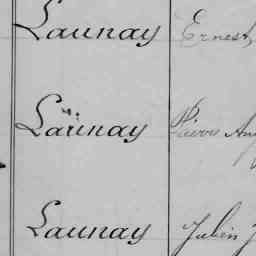 Launay Ernest,
Launay Pierre Aug
Launay Julien J